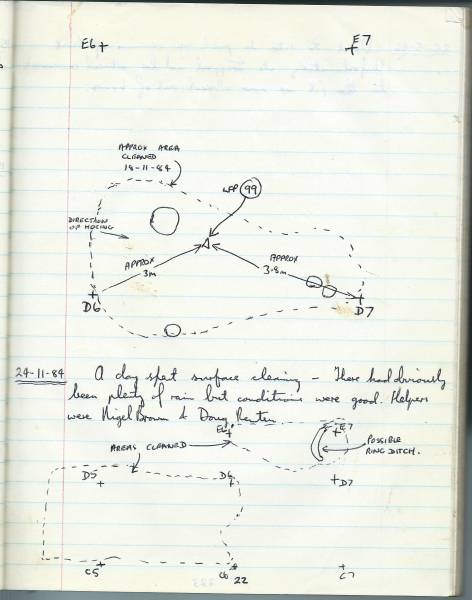 E6 E7
APPROX AREA
CLEANED
18-11-84
LFP 99
DIRECTION
OF HOEING
APPROX
3m
APPROX
3.8m
D6 D7
24-11-84 A day spent surface cleaning - There had obviously
been plenty of rain but conditions were good. Helpers
were Nigel Brown & Doug
AREAS CLEANED E6 E7
POSSIBLE
RING DITCH.
D5 D6 D7
C5 C6 C7
22